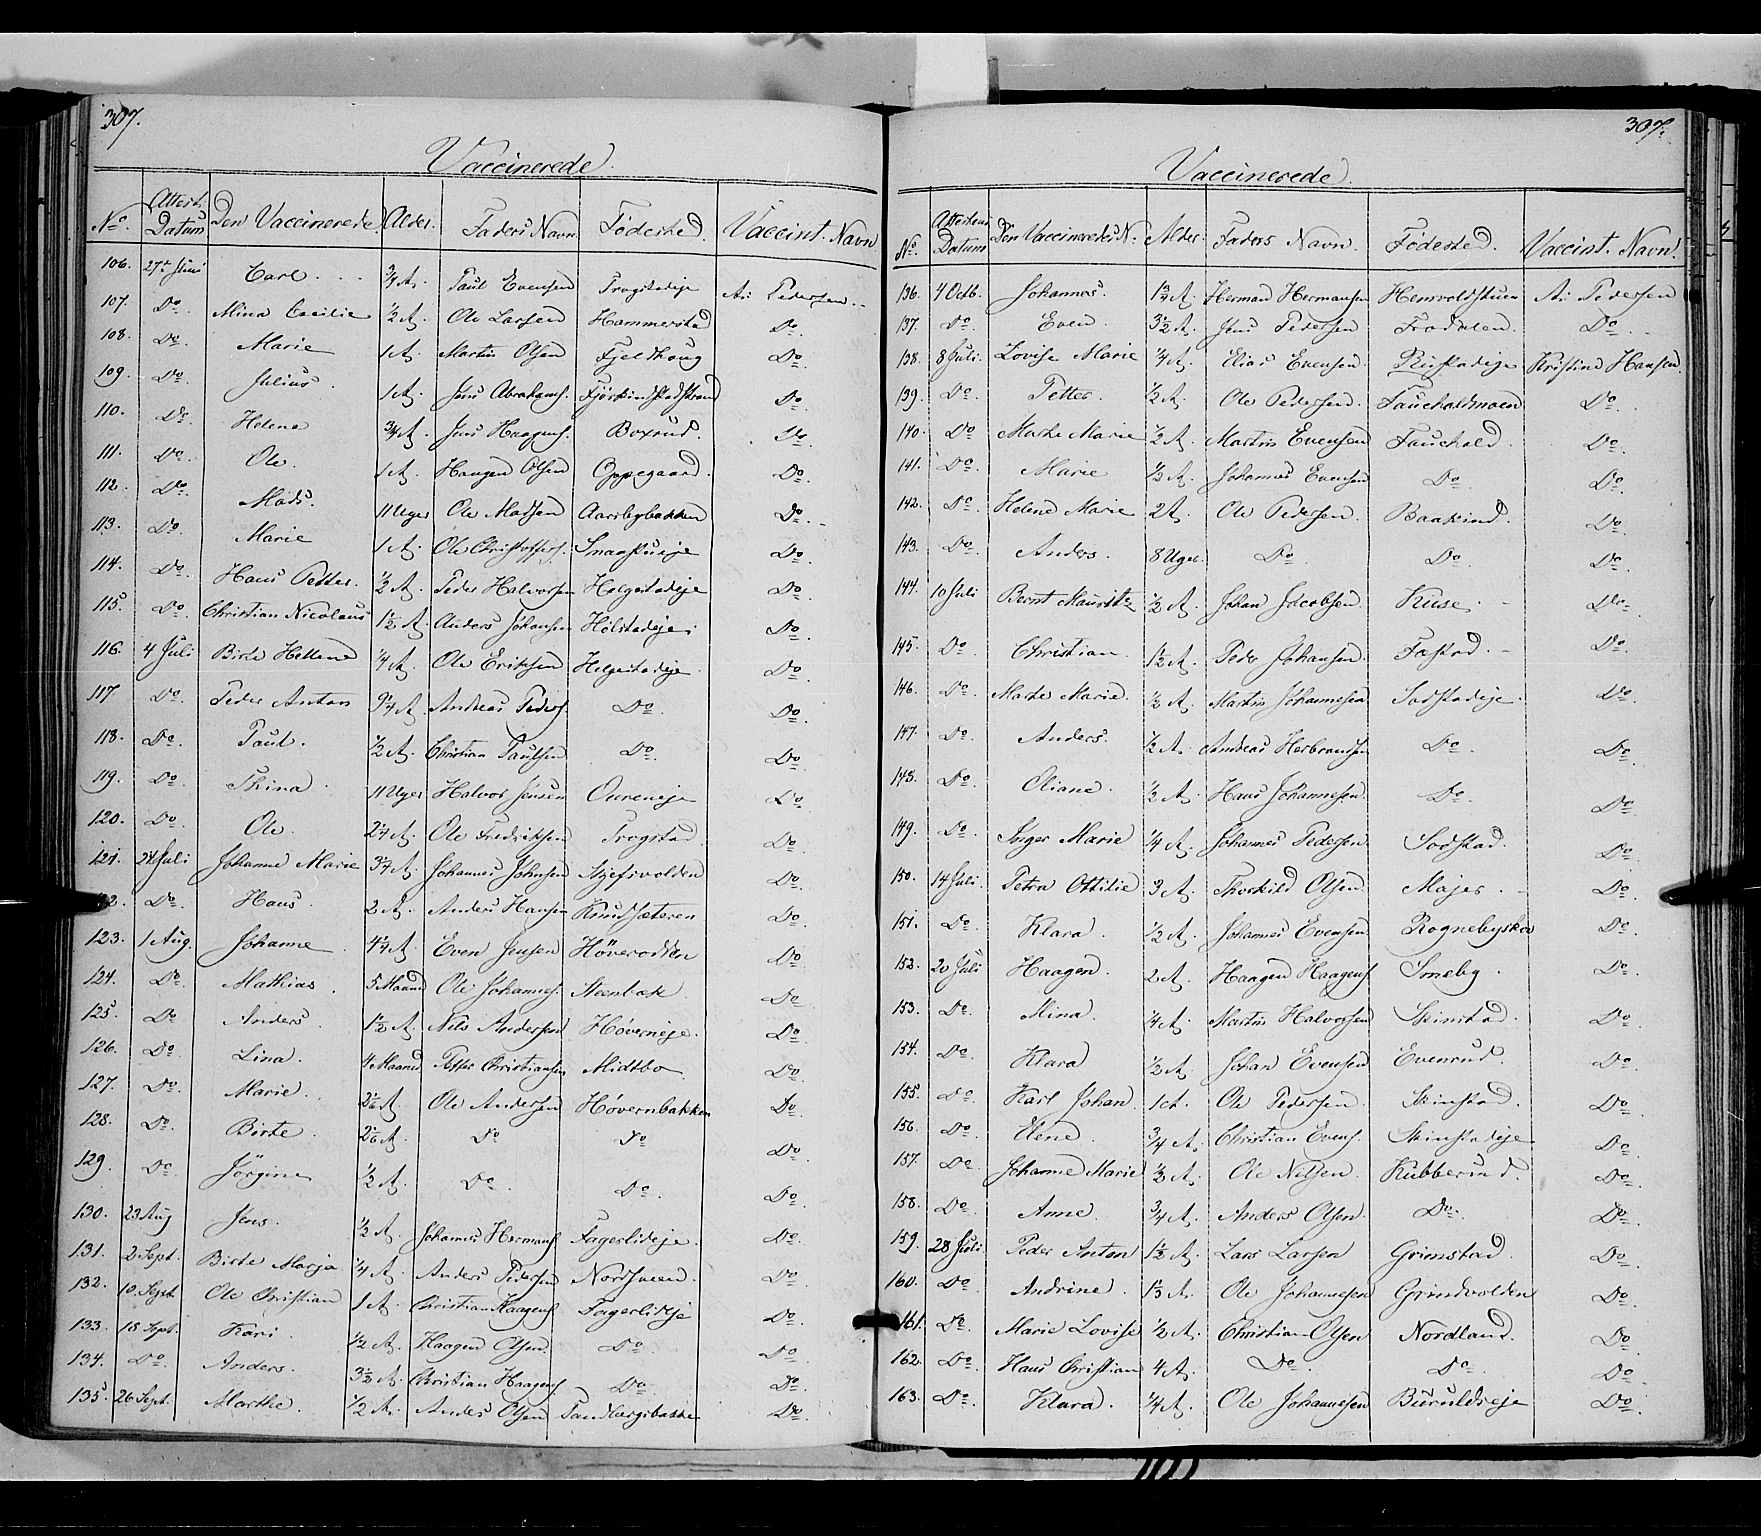 307.
Vaccinerede.
No. Attest. Datum Den Vaccinerede Alder. Faders Navn Fødested. Vaccint. Navn
106. 27de Juni Carl. 3/4 A. Paul Evensen Trogstadeje A: Pedersen
107. Do. Mina Cecilie 1/2 A. Ole Larsen Hammerstad Do.
108. Do. Marie 1 A. Martin Olsen Fjeldhoug Do.
109. Do. Julius. 1 A. Jens Abrahams. Do.
110. Do. Helene 3/4 A. Jens Haagens. Boxrud. Do.
111. Do. Ole. 1 A. Haagen Olsen Oppegaard. Do.
112. Do. Mads. 11 Uger Ole Madsen Aasbybakken Do.
113. Do. Marie 1 A. Ole Christoffers. Do.
114. Do. Hans Petter. 1/2 A. Peder Halvorsen Helgestadeje Do.
115. Do. Christian Nicolaus 1 1/2 A. Anders Johansen Holstadeje. Do.
116. 4 Juli Birte Hellene 1/4 A. Ole Eriksen Helgestadeje. Do.
117. Do. Peder Anton 9 1/4 A. Andreas Peders. Do. Do.
118. Do. Paul. 1/2 A. Christian Paulsen Do. Do.
119. Do. Thina. 11 Uger Halvor Jensen Oureneje Do.
120. Do. Ole. 2 1/4 A. Ole Fredriksen Trogstad. Do.
121. 24 Juli Johanne Marie 3 1/4 A. Johannes Johnsen Do.
122. Do. Hans. 2 A. Anders Hansen Knudsæteren Do.
123. 1 Aug. Johanne 4 1/4 A. Even Jensen Høverodden Do.
124. Do. Mathias. 5 Maaned Ole Johannes. Steenbæk Do.
125. Do. Anders. 1 1/2 A. Nils Andersen Høverneje. Do.
126. Do. Lina. 4 Maaned Petter Christiansen Midtbo. Do.
127. Do. Marie. 2 1/6 A. Ole Andersen Høvernbakken Do
128. Do. Birte. 2 1/6 A. Do Do. Do.
129. Do. Jörgine 1/2 A. Do. Do. Do.
130. 23 Aug Jens. 1/2 A. Johannes Hermans. Fagerlideje. Do.
131. 2 Sept. Birte Marja 1/4 A. Anders Pedersen Nordsveen. Do.
132. 10 Sept. Ole Christian 1 A. Christian Haagens. Fagerlideje Do.
133. 18 Sept. Kari. 1/2 A. Haagen Olsen Do. Do.
134. Do. Anders. 3 1/2 A. Christian Haagens. Do. Do.
135. 26 Sept. Marthe. 1/2 A. Anders Olsen Sandbergsbakke Do.
307.
Vaccinerede.
No. Attestens Datum Den Vaccineredes N. Alder. Faders Navn. Fødested. Vaccint. Navn.
136. 4 Octb. Johannes. 1 3/4 A. Herman Hermansen Hemvoldstuen A: Pedersen
137. Do. Even. 3 1/2 A. Jens Pedersen Frodalen. Do.
138. 8 Juli. Lovise Marie 1/4 A. Elias Evensen Rustadeje Kristine Hansen.
139. Do. Petter. 1/2 A. Ole Pedersen. Fauchaldmoen Do.
140. Do Marte Marie 1/2 A. Martin Evensen Fauchald. Do.
141. Do. Marie 1/2 A. Johannes Evensen Do. Do.
142. Do. Helene Marie 2 A. Ole Pedersen. Baakind. Do.
143. Do. Anders. 8 Uger. Do. Do. Do.
144. 10 Juli Bernt Mauritz 1/2 A. Johan Jacobsen. Kuse. Do.
145. Do. Christian. 1 1/2 A. Peder Johansen. Fastad. Do.
146. Do. Marte Marie. 1/2 A. Martin Johannesen Sodstadeje. Do.
147. Do. Anders. 1/2 A. Andreas Herbransen Do. Do.
148. Do. Oliane. 1/2 A. Hans Johannesen. Do. Do.
149. Do. Inger Marie 1/4 A. Johannes Pedersen Sodstad. Do.
150. 14 Juli. Petra Ottilie 3 A. Thorkild Olsen. Majer. Do.
151. Do. Klara. 1/2 A. Johannes Evensen Rognebyskov Do.
152. 20 Juli Haagen. 2 A. Haagen Haagens. Smeby. Do.
153. Do. Mina. 1/4 A. Martin Halvorsen Skinstad. Do.
154. Do. Klara 1/2 A. Johan Evensen Evenrud. Do.
155. Do. Karl Johan. 1 A. Ole Pedersen. Skinstad. Do.
156. Do. Elene. 3/4 A. Christian Evens. Skinstadeje Do.
157. Do. Johanne Marie 1/2 A. Ole Nilsen. Kubberud. Do.
158. Do. Anne. 3/4 A. Anders Olsen. Do. Do.
159. 28 Juli Peder Anton 1 1/2 A. Lars Larsen Grimstad. Do.
160. Do. Andrine. 1/3 A. Ole Johannesen Grindvolden Do.
161. Do. Marie Lovise 1/2 A. Christian Olsen Nordland. Do.
162. Do. Hans Christian 4 A. Do. Do. Do.
163. Do. Klara. 1/4 A. Ole Johannesen Buruldseje Do.